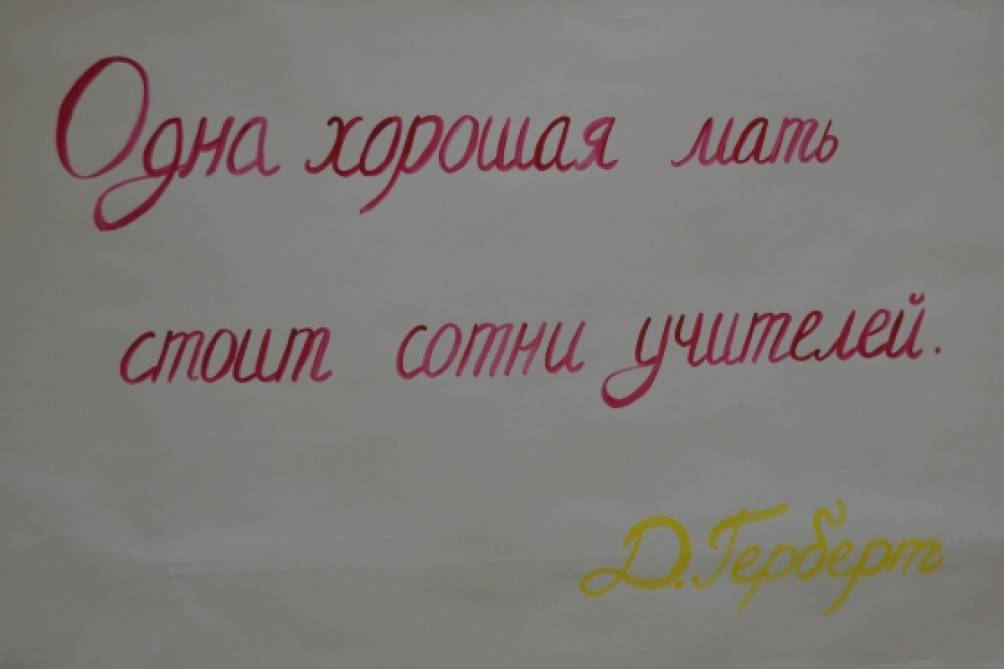 Одна хорошая мать
стоит сотни учителей.
Д. Герберт